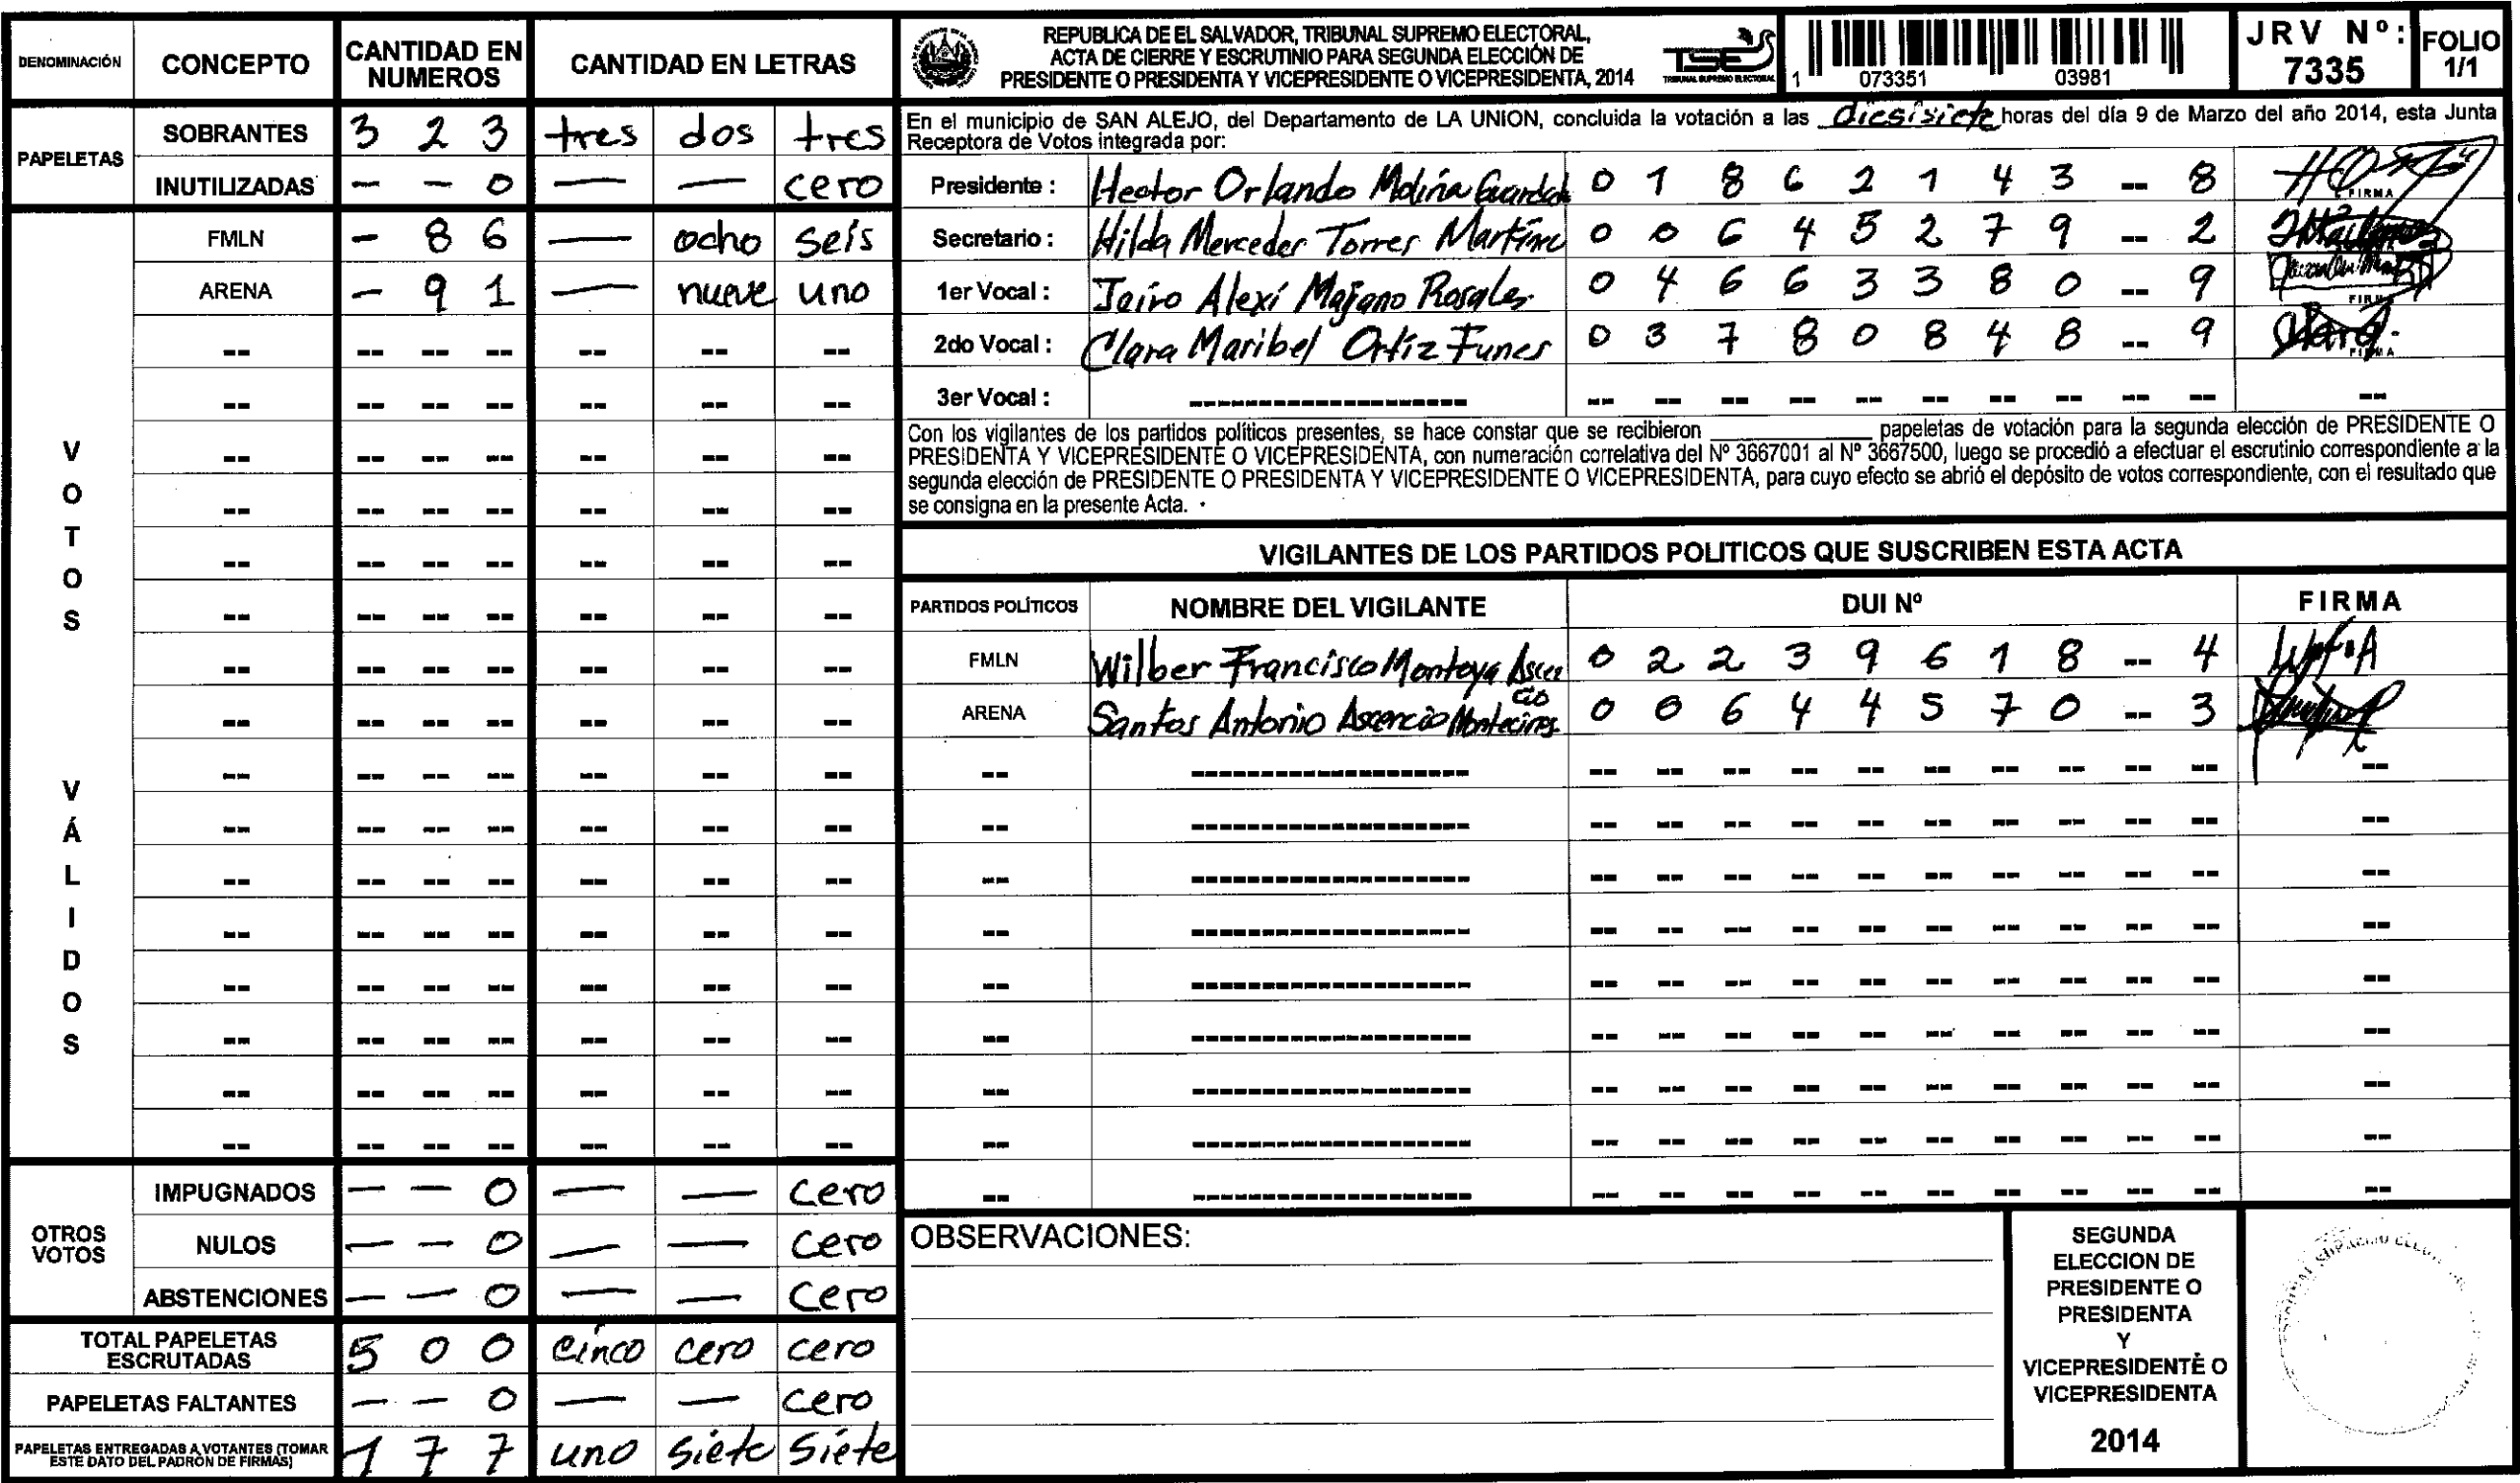 DENOMINACIÓN CONCEPTO CANTIDAD EN NUMEROS CANTIDAD EN LETRAS
PAPELETAS
SOBRANTES 3 2 3 tres dos tres
INUTILIZADAS - - 0 — — cero
VOTOS VÁLIDOS
FMLN - 8 6 — ocho seis
ARENA - 9 1 — nueve uno
OTROS VOTOS
IMPUGNADOS - - 0 — — cero
NULOS - - 0 — — cero
ABSTENCIONES - - 0 — — cero
TOTAL PAPELETAS ESCRUTADAS 5 0 0 cinco cero cero
PAPELETAS FALTANTES - - 0 — — cero
PAPELETAS ENTREGADAS A VOTANTES (TOMAR ESTE DATO DEL PADRÓN DE FIRMAS) 1 7 7 uno siete siete
REPUBLICA DE EL SALVADOR, TRIBUNAL SUPREMO ELECTORAL,
ACTA DE CIERRE Y ESCRUTINIO PARA SEGUNDA ELECCIÓN DE
PRESIDENTE O PRESIDENTA Y VICEPRESIDENTE O VICEPRESIDENTA, 2014
TSE
TRIBUNAL SUPREMO ELECTORAL
1 073351 03981
JRV Nº: 7335
FOLIO 1/1
En el municipio de SAN ALEJO, del Departamento de LA UNION, concluida la votación a las diesisiete horas del día 9 de Marzo del año 2014, esta Junta
Receptora de Votos integrada por:
Presidente : Hector Orlando Molina 0 1 8 6 2 1 4 3 -- 8 FIRMA
Secretario : Hilda Mercedes Torres Martine 0 0 6 4 5 2 7 9 -- 2
1er Vocal : Jairo Alexí Majano Rosales 0 4 6 6 3 3 8 0 -- 9 FIRMA
2do Vocal : Clara Maribel Ortíz Funes 0 3 7 8 0 8 4 8 -- 9 FIRMA
3er Vocal :
Con los vigilantes de los partidos políticos presentes, se hace constar que se recibieron ____________ papeletas de votación para la segunda elección de PRESIDENTE O
PRESIDENTA Y VICEPRESIDENTE O VICEPRESIDENTA, con numeración correlativa del Nº 3667001 al Nº 3667500, luego se procedió a efectuar el escrutinio correspondiente a la
segunda elección de PRESIDENTE O PRESIDENTA Y VICEPRESIDENTE O VICEPRESIDENTA, para cuyo efecto se abrió el depósito de votos correspondiente, con el resultado que
se consigna en la presente Acta.
VIGILANTES DE LOS PARTIDOS POLITICOS QUE SUSCRIBEN ESTA ACTA
PARTIDOS POLÍTICOS NOMBRE DEL VIGILANTE DUI Nº FIRMA
FMLN Wilber Francisco Montoya Ascencio 0 2 2 3 9 6 1 8 -- 4
ARENA Santos Antonio Ascencio 0 0 6 4 4 5 7 0 -- 3
OBSERVACIONES:
SEGUNDA
ELECCION DE
PRESIDENTE O
PRESIDENTA
Y
VICEPRESIDENTE O
VICEPRESIDENTA
2014